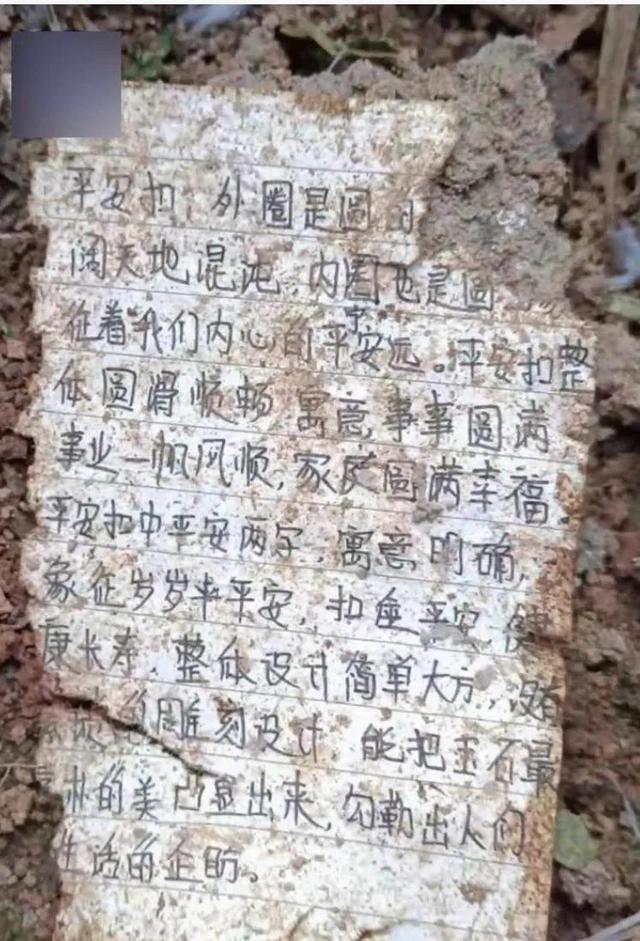 平安扣,外圈是圆
阔天地混沌,内圈也是圆
征着我们内心的平安宁远。平安扣整
体圆滑顺畅 寓意事事圆满,
事业一帆风顺,家庭圆满幸福。
平安扣中平安两字,寓意明确,
象征岁岁平平安,扣垂平安,健
康长寿。整体设计简单大方,没有
的雕刻设计 能把玉石最
朴的美凸显出来,勾勒出人们
生活的企盼。